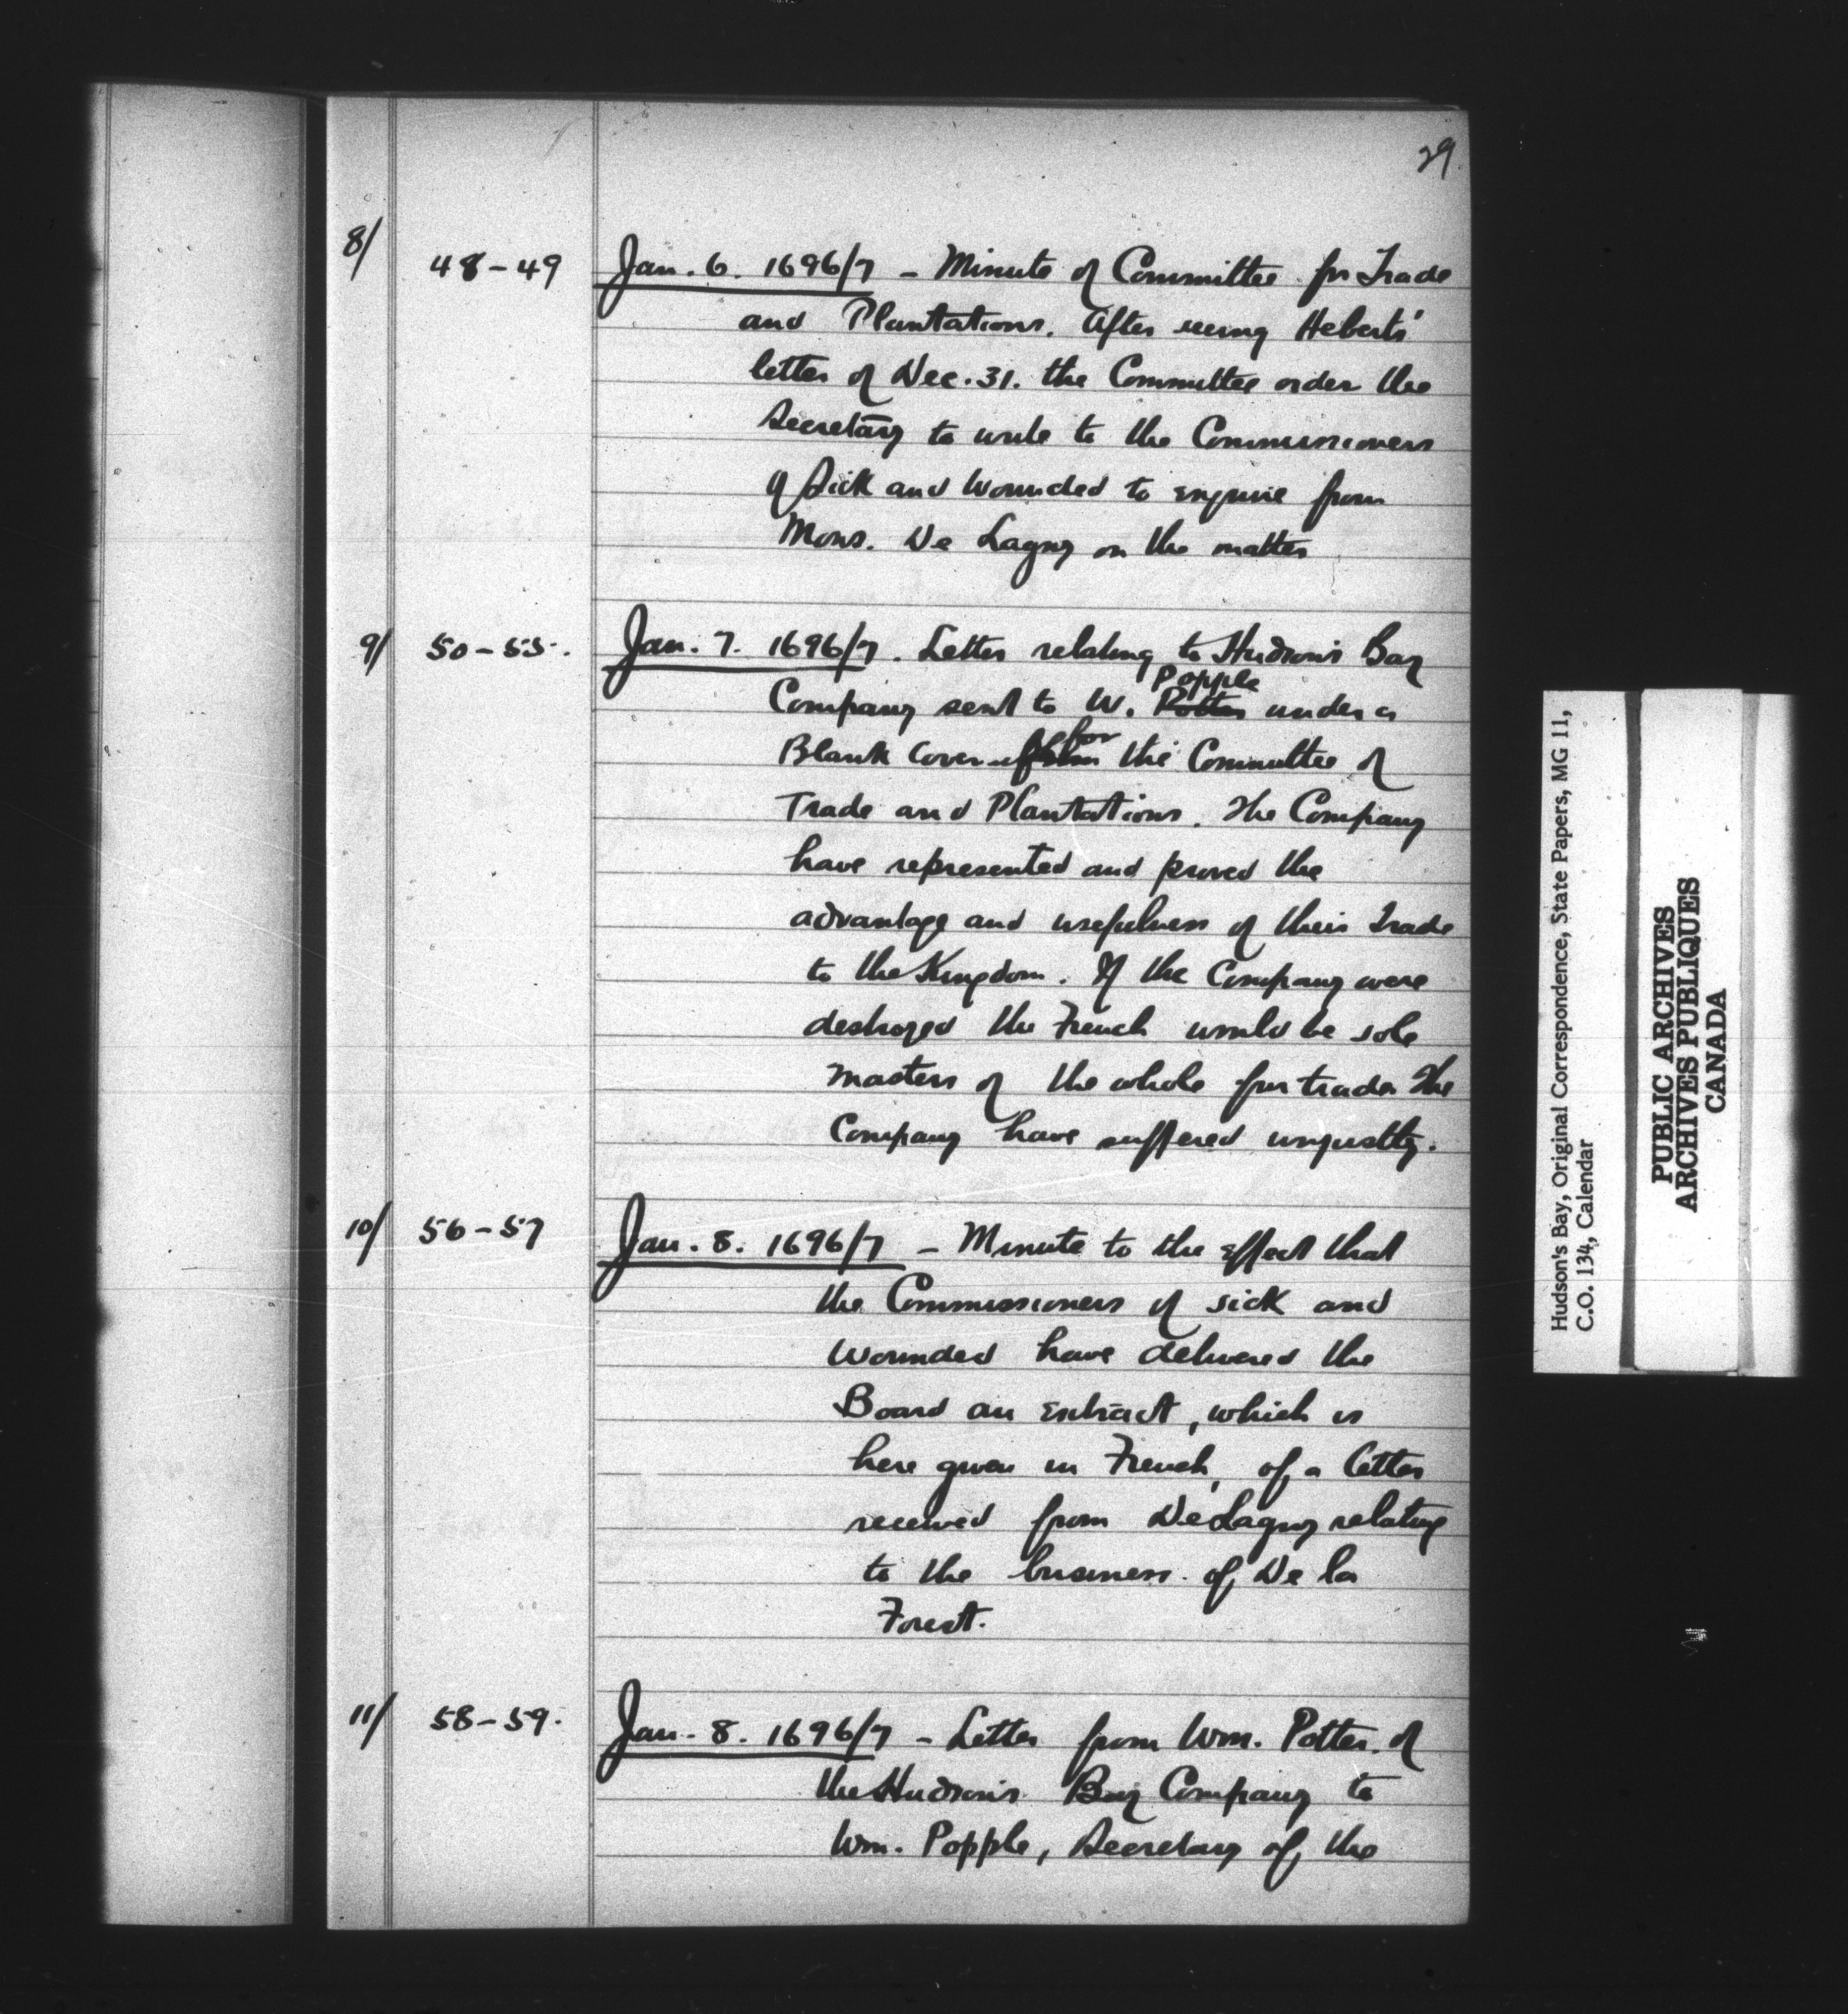 29.
8/ 48-49 Jan. 6. 1696/7 - Minute of Committee for Trade
and Plantations. After seeing Heberts'
letter of Dec. 31. the Committee order the
Secretary to write to the Commissioners
of Sick and Wounded to enquire from
Mons. De Lagny on the matter
9/ 50-55. Jan. 7. 1696/7. Letter relating to Hudson's Bay
Popple
Company sent to W. Potter under a
for
Blank Cover the Committee of
Trade and Plantations. The Company
have represented and proved the
advantage and usefulness of their Trade
to the Kingdom. If the Company were
destroyed the French would be sole
masters of the whole fur trade. The
Company have suffered unjustly.
10/ 56-57 Jan. 8. 1696/7 - Minute to the effect that
the Commissioners of sick and
wounded have delivered the
Board an extract, which is
here given in French, of a letter
received from De Lagny relating
to the business of De la
Forest.
11/ 58-59. Jan. 8. 1696/7 - Letter from Wm. Potter of
the Hudson's Bay Company to
Wm. Popple, Secretary of the
Hudson's Bay, Original Correspondence, State Papers, MG 11,
C.O. 134, Calendar
PUBLIC ARCHIVES
ARCHIVES PUBLIQUES
CANADA